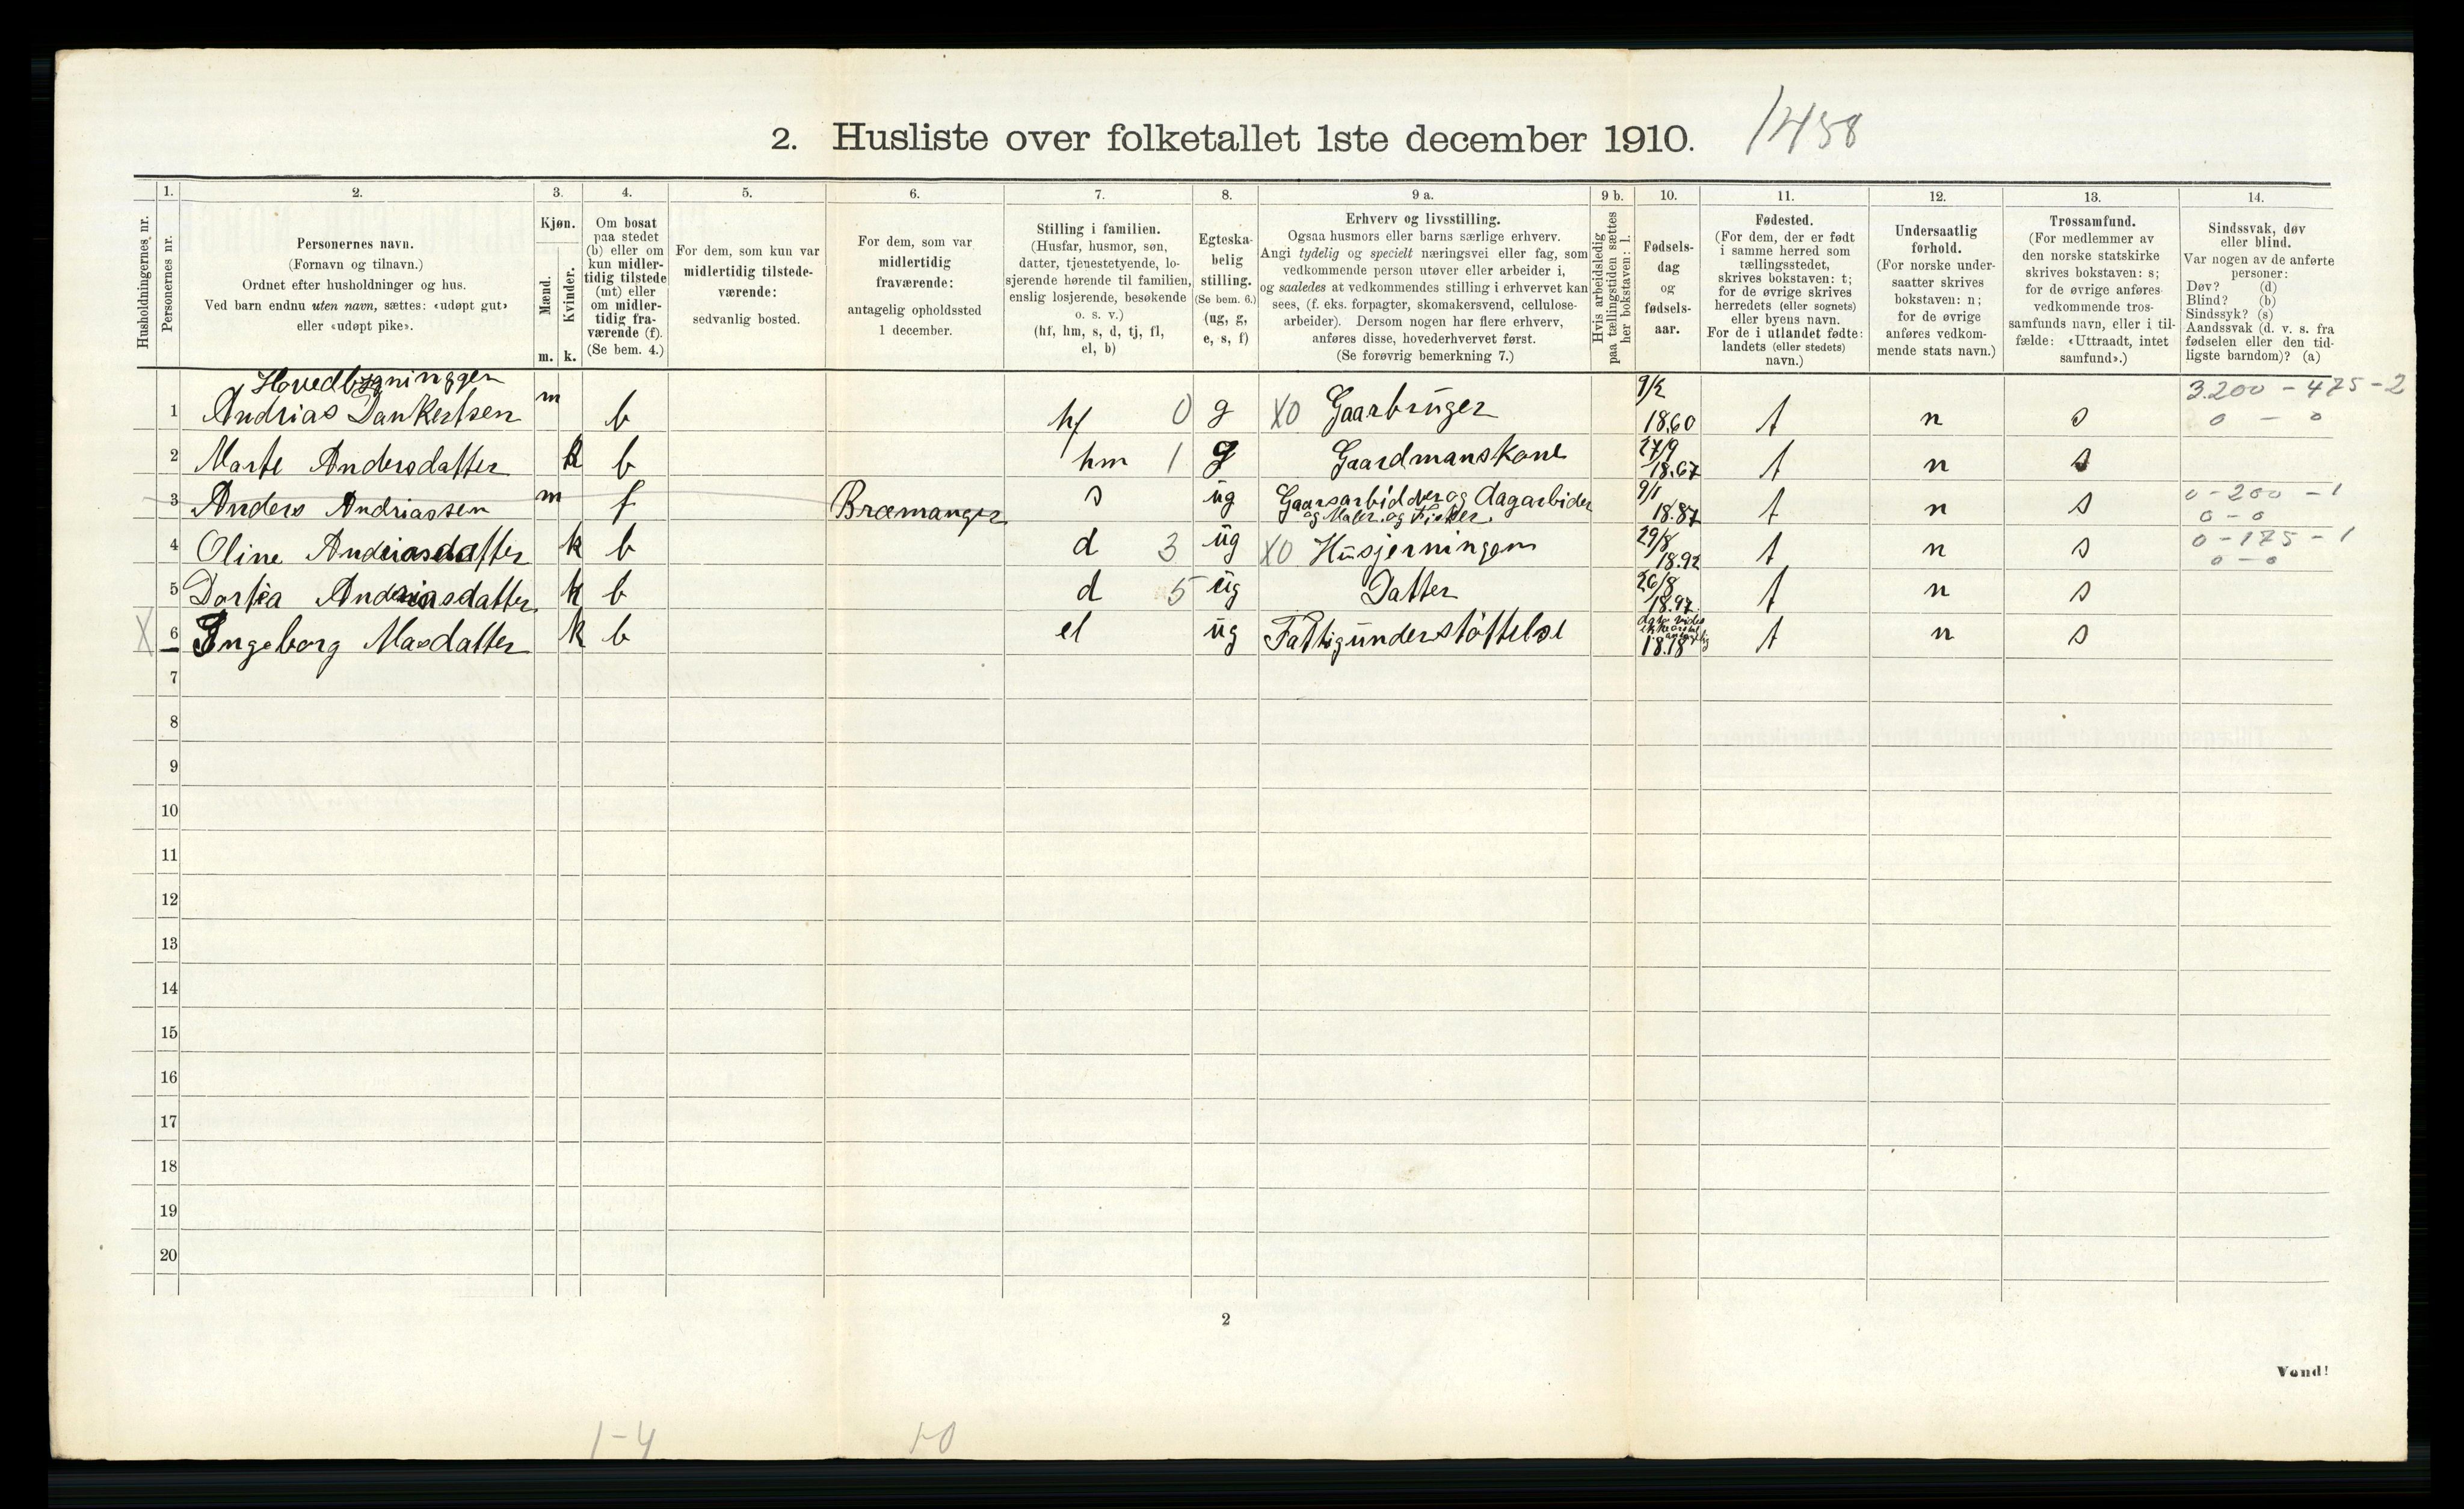 2. Husliste over folketallet 1ste december 1910. 1458
Husholdningernes nr.
1.
Personernes nr.
2.
Personernes navn.
(Fornavn og tilnavn.)
Ordnet efter husholdninger og hus.
Ved barn endnu uten navn, sættes: «udøpt gut»
eller «udøpt pike».
3.
Kjøn.
Mænd.
Kvinder.
m. k.
4.
Om bosat
paa stedet
(b) eller om
kun midler-
tidig tilstede
(mt) eller
om midler-
tidig fra-
værende (f).
(Se bem. 4.)
5.
For dem, som kun var
midlertidig tilstede-
værende:
sedvanlig bosted.
6.
For dem, som var
midlertidig
fraværende:
antagelig opholdssted
1 december.
7.
Stilling i familien.
(Husfar, husmor, søn,
datter, tjenestetyende, lo-
sjerende hørende til familien,
enslig losjerende, besøkende
o. s. v.)
(hf, hm, s, d, tj, fl,
el, b)
8.
Egteska-
belig
stilling.
(Se bem. 6.)
(ug, g,
e, s, f)
9 a.
Erhverv og livsstilling.
Ogsaa husmors eller barns særlige erhverv.
Angi tydelig og specielt næringsvei eller fag, som
vedkommende person utøver eller arbeider i,
og saaledes at vedkommendes stilling i erhvervet kan
sees, (f. eks. forpagter, skomakersvend, cellulose-
arbeider). Dersom nogen har flere erhverv,
anføres disse, hovederhvervet først.
(Se forøvrig bemerkning 7.)
9 b.
Hvis arbeidsledig
paa tællingstiden sættes
her bokstaven: l.
10.
Fødsels-
dag
og
fødsels-
aar.
11.
Fødested.
(For dem, der er født
i samme herred som
tællingsstedet,
skrives bokstaven: t;
for de øvrige skrives
herredets (eller sognets)
eller byens navn.
For de i utlandet fødte:
landets (eller stedets)
navn.)
12.
Undersaatlig
forhold.
(For norske under-
saatter skrives
bokstaven: n;
for de øvrige
anføres vedkom-
mende stats navn.)
13.
Trossamfund.
(For medlemmer av
den norske statskirke
skrives bokstaven: s;
for de øvrige anføres
vedkommende tros-
samfunds navn, eller i til-
fælde: «Uttraadt, intet
samfund».)
14.
Sindssvak, døv
eller blind.
Var nogen av de anførte
personer:
Døv? (d)
Blind? (b)
Sindssyk? (s)
Aandssvak (d. v. s. fra
fødselen eller den tid-
ligste barndom)? (a)
Hovedbygninggen 9/2 3.200 - 475 - 2
1 Andrias Dankertsen m b hf 0 g X0 Gaarbrüger 18.60 t n s 0 - 0
2 Marte Andersdatter k b hm 1 g Gaardmanskone 27/9 18.67 t n s
3 Anders Andriassen m f Bræmanger s üg Gaarsarbidder og dagarbider 9/1 18.87 t n s 0 - 200 - 1
og Maler og Fisker. 0 - 0
4 Oline Andriasdatter k b d 3 üg X0 Hüsjerningem 29/8 18.92 t n s 0 - 175 - 1
0 - 0
5 Dortea Andriasdatter k b d 5 üg Datter 26/8 18.97 t n s
X 6 Engeborg Masdatter k b el üg Fattigünderstøttelse 18.18 t n s
7
8
9
10
11
12
13
14
15
16
17
18
19
20
2
Vend!
1-4 1-0